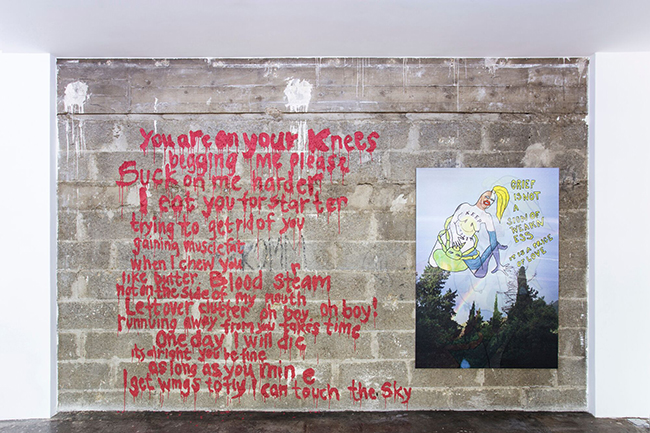 You are on your Knees
begging me please
Suck on me harder
I eat you for starter
trying to get rid of you
gaining muscle fat
when I chew you
like butter Blood steam
not on the side of my mouth
Left over clutter oh boy, oh boy!
running away from you takes time
One day I will die
its alright you be fine
as long as you mine
I get wings to fly I can touch the sky
GRIEF
IS NOT
A
SIGN OF
WEAKN
ESS
IT IS A
OF LOVE